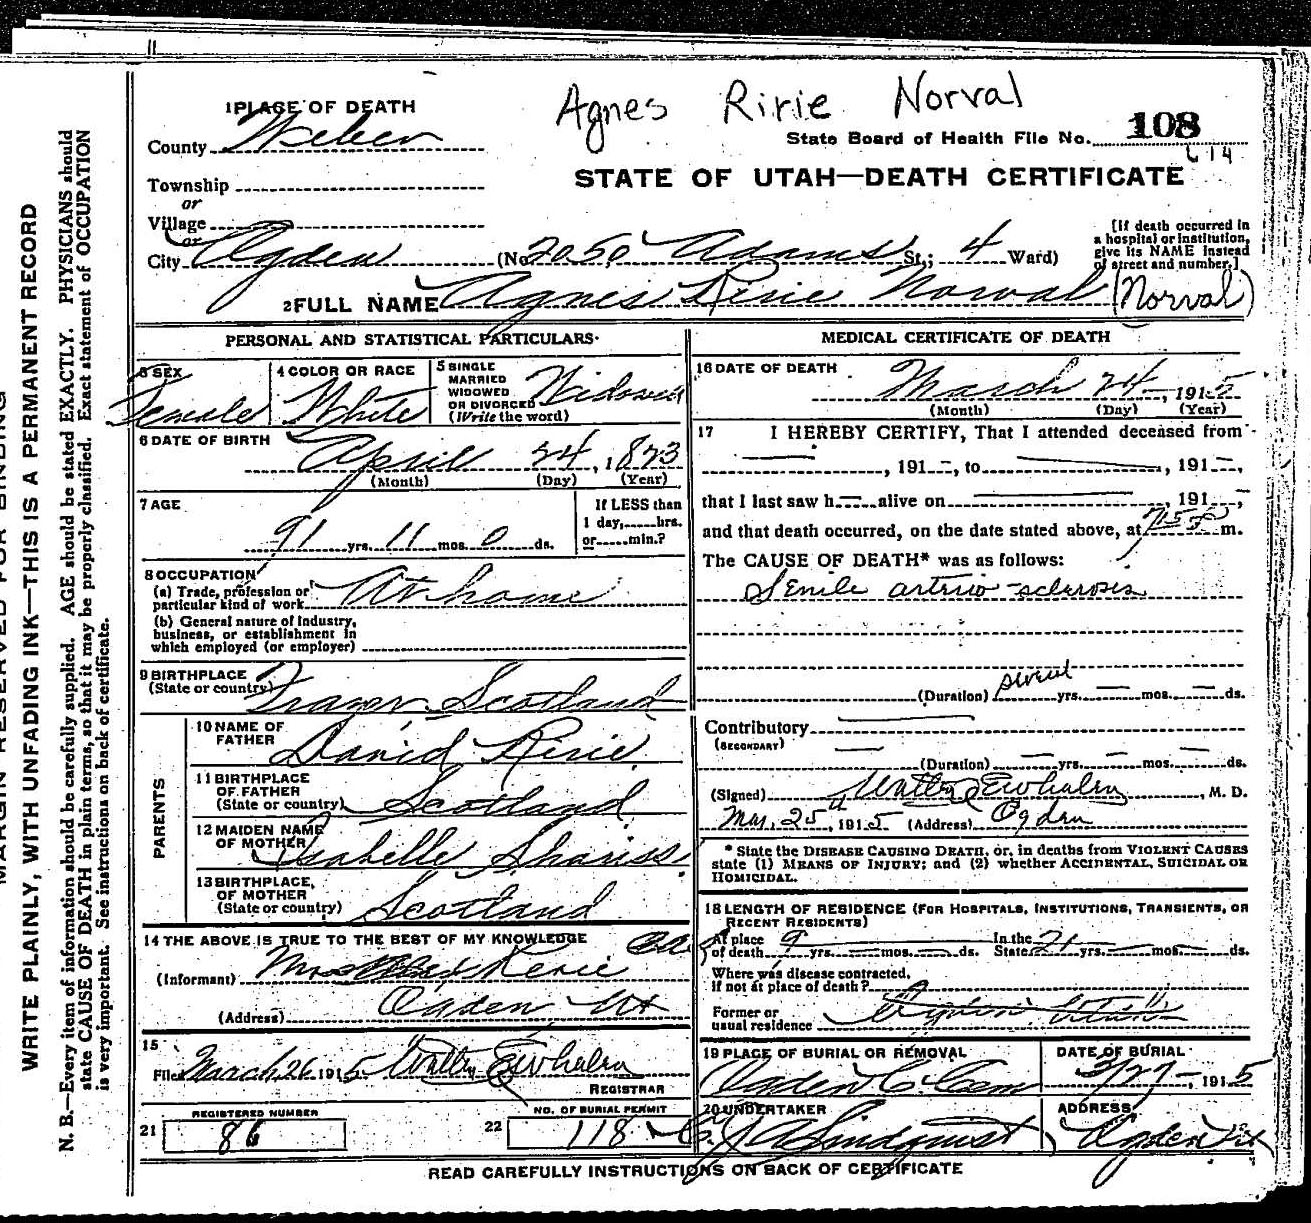 Agnes Ririe Norval
1 PLACE OF DEATH
County Weber
State Board of Health File No. 108
614
Township
or
Village
or
STATE OF UTAH—DEATH CERTIFICATE
City Ogden (No 2050 Adams St.; 4 Ward)
[If death occurred in
a hospital or institution,
give its NAME instead
of street and number.]
2 FULL NAME Agnes Ririe Norval (Norval)
PERSONAL AND STATISTICAL PARTICULARS
3 SEX
Female
4 COLOR OR RACE
White
5 SINGLE
MARRIED
WIDOWED
OR DIVORCED
(Write the word)
Widowed
6 DATE OF BIRTH
April 24, 1823
(Month) (Day) (Year)
7 AGE
91 yrs. 11 mos. 0 ds.
If LESS than
1 day, hrs.
or min.?
8 OCCUPATION
(a) Trade, profession or
particular kind of work At home
(b) General nature of industry,
business, or establishment in
which employed (or employer)
9 BIRTHPLACE
(State or country)
Scotland
PARENTS
10 NAME OF
FATHER
David Ririe
11 BIRTHPLACE
OF FATHER
(State or country) Scotland
12 MAIDEN NAME
OF MOTHER
Isabelle
13 BIRTHPLACE,
OF MOTHER
(State or country) Scotland
14 THE ABOVE IS TRUE TO THE BEST OF MY KNOWLEDGE
(Informant) Mrs Ririe
(Address) Ogden Ut
15
Filed March 26 1915
REGISTRAR
REGISTERED NUMBER
21 86
NO. OF BURIAL PERMIT
22 118
MEDICAL CERTIFICATE OF DEATH
16 DATE OF DEATH
March 24, 1915
(Month) (Day) (Year)
17 I HEREBY CERTIFY, That I attended deceased from
, 191 —, to , 191 —,
that I last saw h— alive on , 191 ,
and that death occurred, on the date stated above, at m.
The CAUSE OF DEATH* was as follows:
Senile arterio-sclerosis
(Duration) several yrs. — mos. — ds.
Contributory
(SECONDARY)
(Duration) — yrs. — mos. — ds.
(Signed) , M. D.
Mar. 25, 1915 (Address) Ogden
* State the DISEASE CAUSING DEATH, or, in deaths from VIOLENT CAUSES
state (1) MEANS OF INJURY; and (2) whether ACCIDENTAL, SUICIDAL OR
HOMICIDAL.
18 LENGTH OF RESIDENCE (FOR HOSPITALS, INSTITUTIONS, TRANSIENTS, OR
RECENT RESIDENTS)
At place
of death 9 yrs. mos. ds. In the
State 21 yrs. mos. ds.
Where was disease contracted,
if not at place of death?
Former or
usual residence
19 PLACE OF BURIAL OR REMOVAL
Ogden C. Cem
DATE OF BURIAL
3/27-, 1915
20 UNDERTAKER
Lindquist
ADDRESS
Ogden Ut
READ CAREFULLY INSTRUCTIONS ON BACK OF CERTIFICATE
WRITE PLAINLY, WITH UNFADING INK—THIS IS A PERMANENT RECORD
N. B.—Every item of information should be carefully supplied. AGE should be stated EXACTLY. PHYSICIANS should
state CAUSE OF DEATH in plain terms, so that it may be properly classified. Exact statement of OCCUPATION
is very important. See instructions on back of certificate.